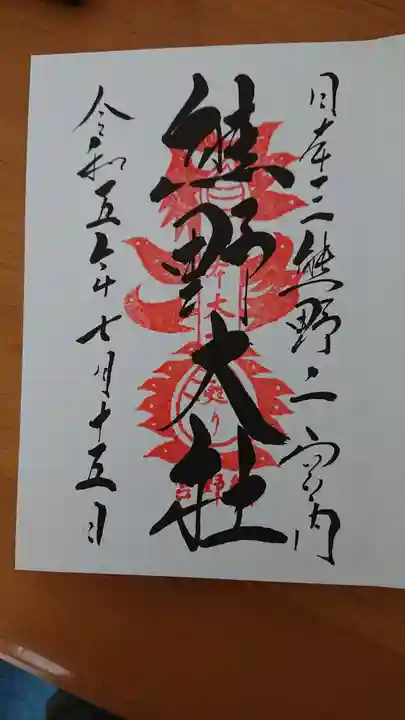 日本三熊野二宮内
熊野大社
令和五年七月十五日